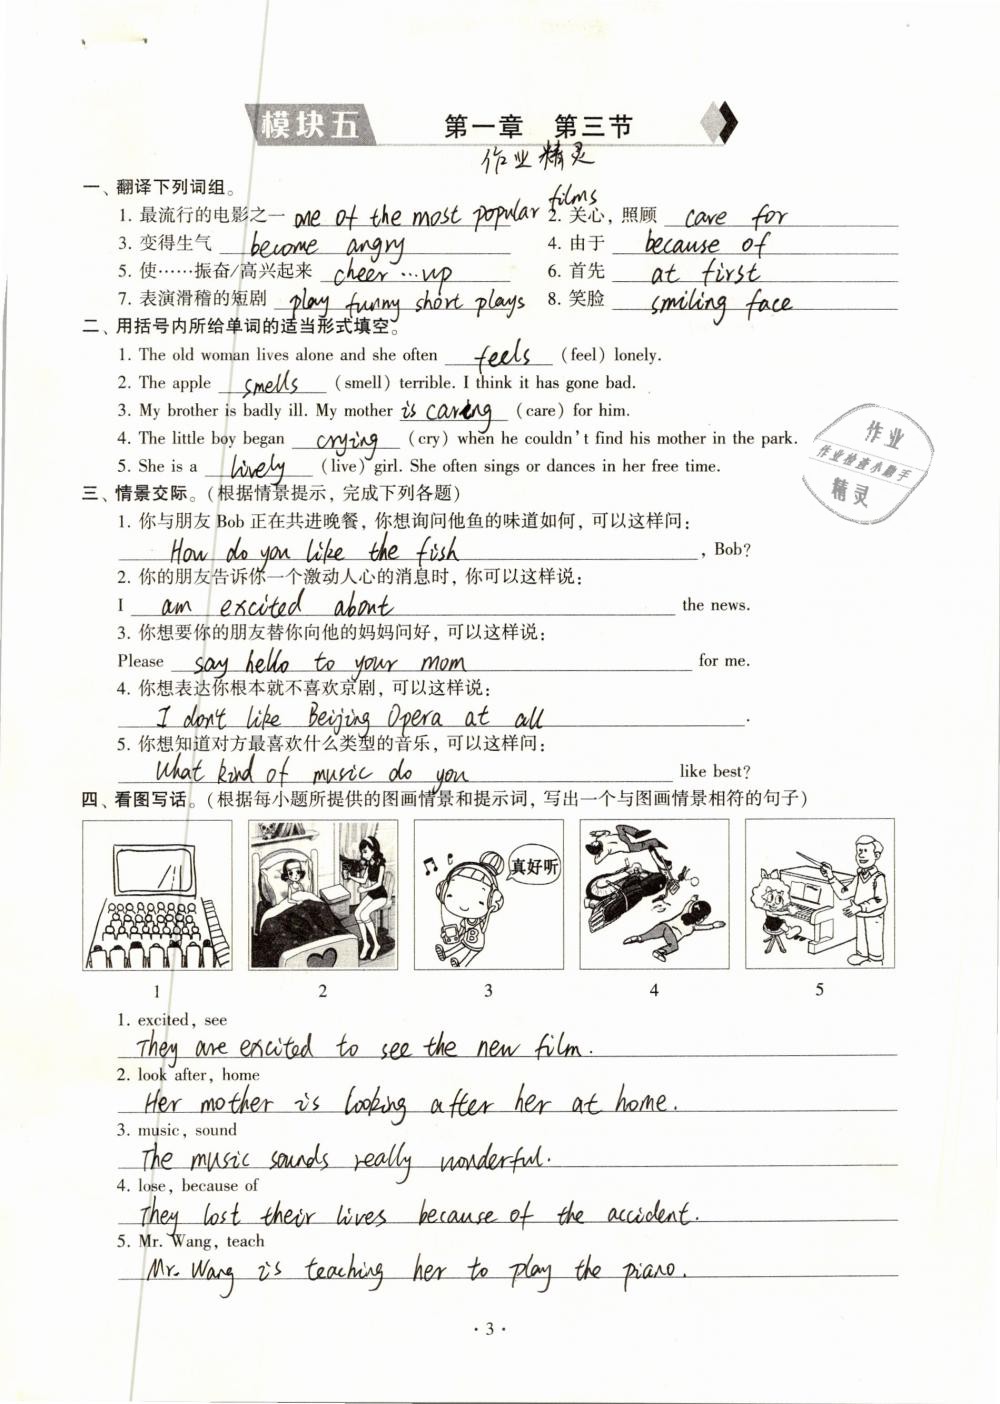 模块五 第一章 第三节
作业精灵
一、翻译下列词组。
films
1. 最流行的电影之一 one of the most popular 2. 关心，照顾 care for
3. 变得生气 become angry 4. 由于 because of
5. 使……振奋/高兴起来 cheer …up 6. 首先 at first
7. 表演滑稽的短剧 play funny short plays 8. 笑脸 smiling face
二、用括号内所给单词的适当形式填空。
1. The old woman lives alone and she often feels (feel) lonely.
2. The apple smells (smell) terrible. I think it has gone bad.
3. My brother is badly ill. My mother is caring (care) for him.
4. The little boy began crying (cry) when he couldn't find his mother in the park.
5. She is a lively (live) girl. She often sings or dances in her free time.
作业
作业检查小助手
精灵
三、情景交际。(根据情景提示，完成下列各题)
1. 你与朋友 Bob 正在共进晚餐，你想询问他鱼的味道如何，可以这样问：
How do you like the fish, Bob?
2. 你的朋友告诉你一个激动人心的消息时，你可以这样说：
I am excited about the news.
3. 你想要你的朋友替你向他的妈妈问好，可以这样说：
Please say hello to your mom for me.
4. 你想表达你根本就不喜欢京剧，可以这样说：
I don't like Beijing Opera at all.
5. 你想知道对方最喜欢什么类型的音乐，可以这样问：
What kind of music do you like best?
四、看图写话。(根据每小题所提供的图画情景和提示词，写出一个与图画情景相符的句子)
真好听
B
1 2 3 4 5
1. excited, see
They are excited to see the new film.
2. look after, home
Her mother is looking after her at home.
3. music, sound
The music sounds really wonderful.
4. lose, because of
They lost their lives because of the accident.
5. Mr. Wang, teach
Mr. Wang is teaching her to play the piano.
· 3 ·